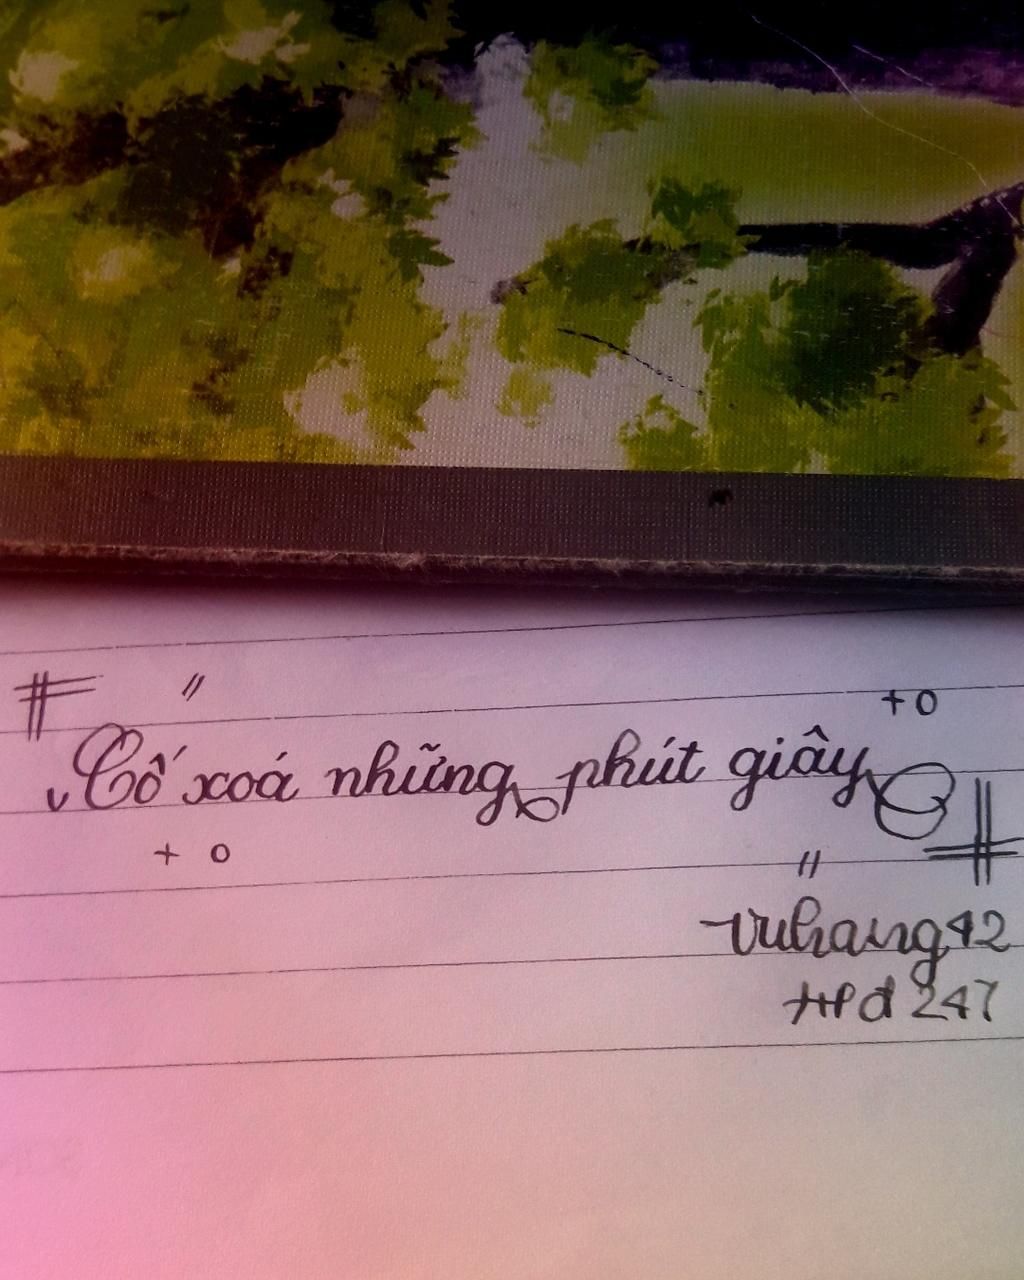 "
+ o
Cố xoá những phút giây
+ o
"
vuhang42
HPđ 247